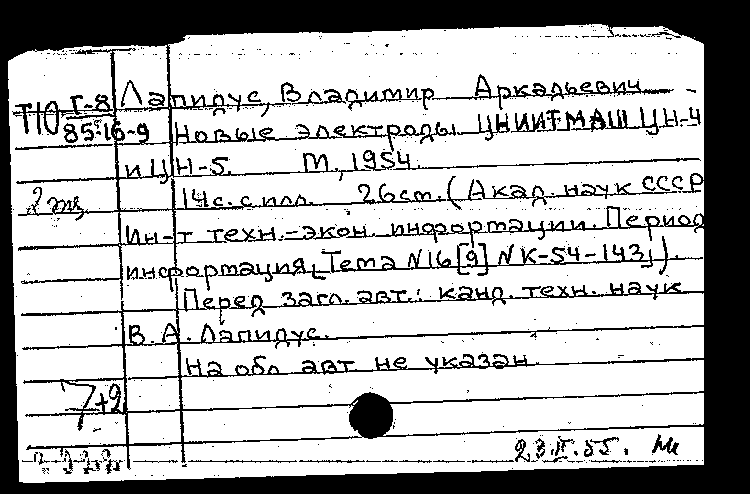 Т10 Г-8 Лапидус, Владимир Аркадьевич
85-16-9 Новые электроды ЦНИИТМАШ ЦН-4
и ЦН-5. М., 1954.
2 экз. 14 с. с илл. 26 см. (Акад. наук СССР
Ин-т техн.-экон. информации. Период
информация, [Тема N16 [9] N К-54-143]).
Перед загл. авт.: канд. техн. наук
В. А. Лапидус.
На обл авт не указан.
7+2